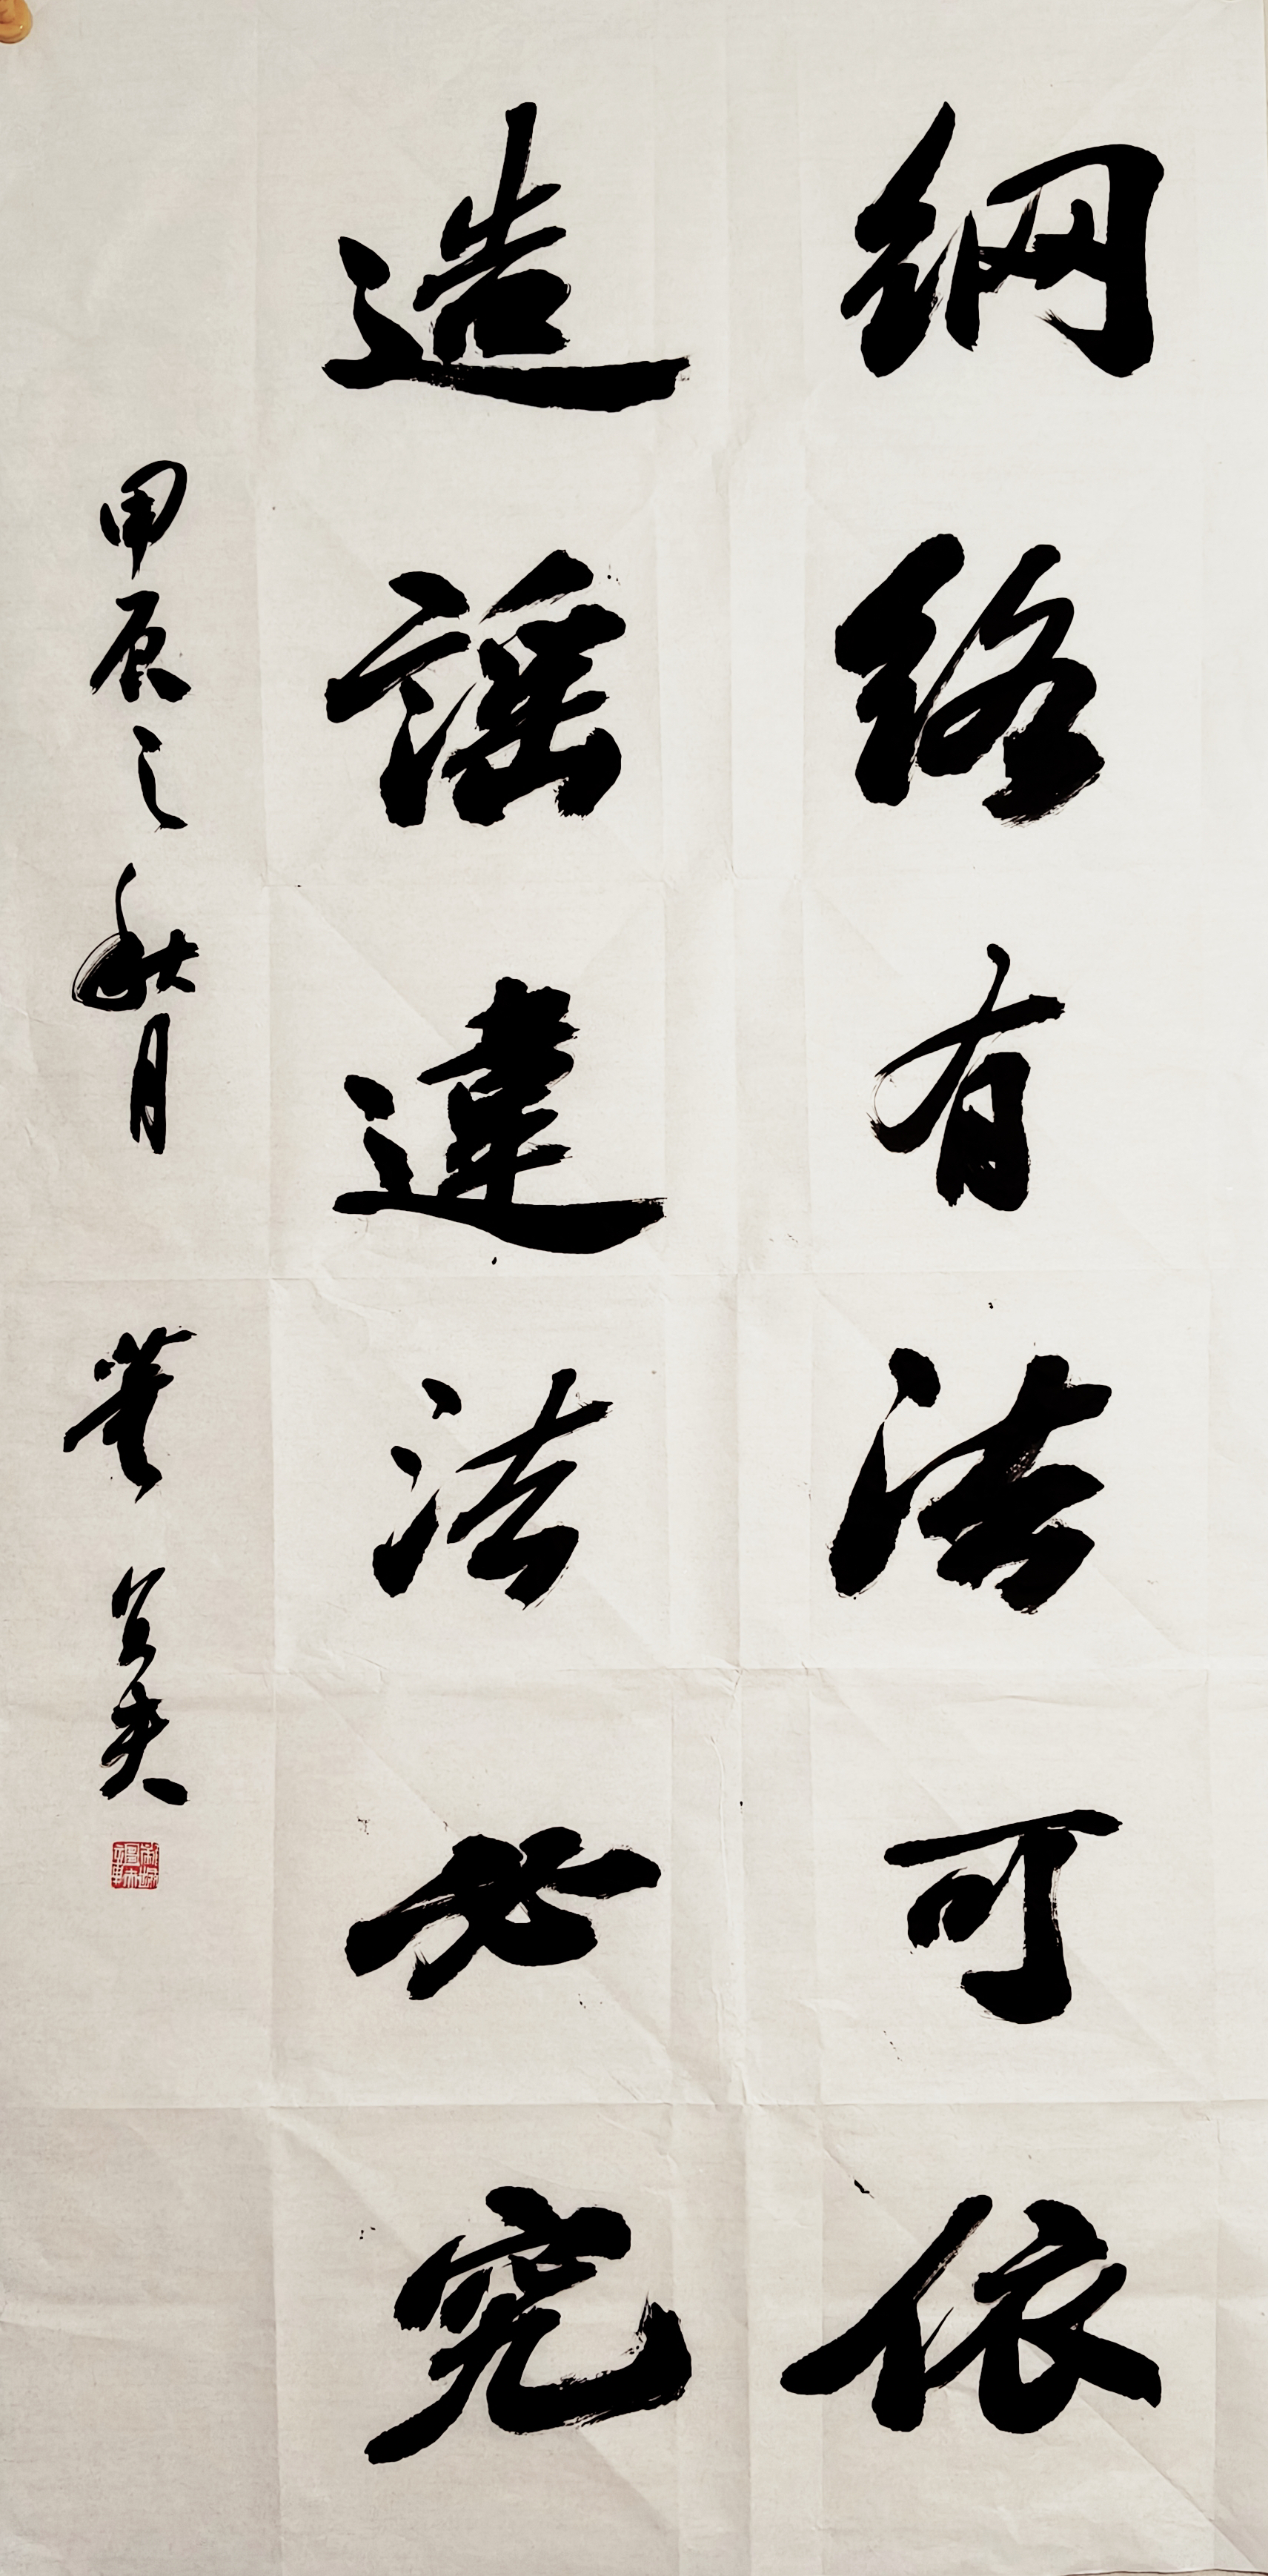 網絡有法可依
造謡違法必究
甲辰之秋月 董公夫